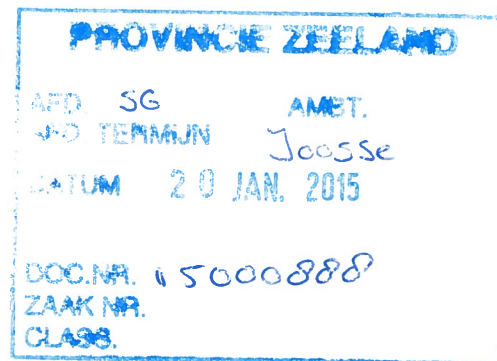 PROVINCIE ZEELAND
AFD. SG AMBT.
AFD TERMIJN Joosse
DATUM 20 JAN. 2015
DOC.NR. 15000888
ZAAK NR.
CLASS.